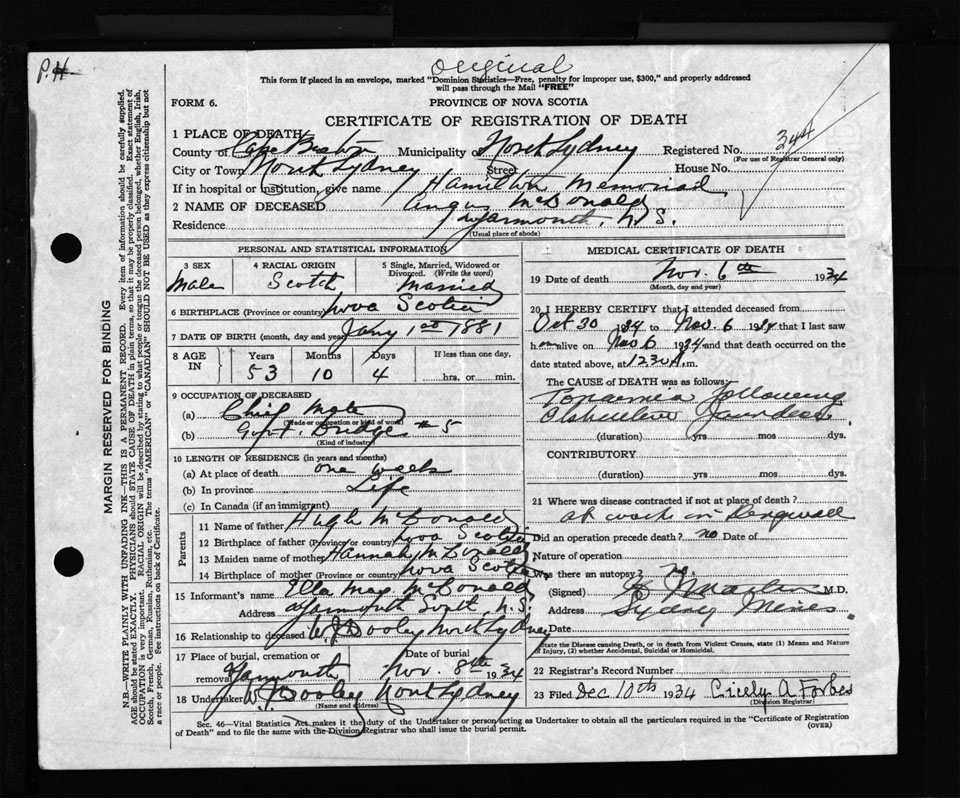 P.H.
Original
This form if placed in an envelope, marked "Dominion Statistics—Free, penalty for improper use, $300," and properly addressed
will pass through the Mail "FREE"
FORM 6.
PROVINCE OF NOVA SCOTIA
CERTIFICATE OF REGISTRATION OF DEATH
1 PLACE OF DEATH
County of Cape Breton Municipality of North Sydney Registered No. 344
(For use of Registrar General only)
City or Town North Sydney Street House No.
If in hospital or institution, give name Hamilton Memorial
2 NAME OF DECEASED Angus McDonald
Residence Yarmouth, N.S.
(Usual place of abode)
PERSONAL AND STATISTICAL INFORMATION
3 SEX Male
4 RACIAL ORIGIN Scotch
5 Single, Married, Widowed or Divorced. (Write the word) Married
6 BIRTHPLACE (Province or country) Nova Scotia
7 DATE OF BIRTH (month, day and year) Jany 1st 1881
8 AGE IN Years 53 Months 10 Days 4 If less than one day, hrs. or min.
9 OCCUPATION OF DECEASED
(a) Chief Mate
(Trade or occupation or kind of work)
(b) Govt. Dredge #5
(Kind of industry)
10 LENGTH OF RESIDENCE (in years and months)
(a) At place of death one week
(b) In province Life
(c) In Canada (if an immigrant)
Parents
11 Name of father Hugh McDonald
12 Birthplace of father (Province or country) Nova Scotia
13 Maiden name of mother Hannah McDonald
14 Birthplace of mother (Province or country) Nova Scotia
15 Informant's name Ella May McDonald
Address Yarmouth South N.S.
16 Relationship to deceased W. J. Dooley North Sydney
17 Place of burial, cremation or removal Yarmouth Date of burial Nov. 8th 1934
18 Undertaker W. J. Dooley North Sydney
(Name and address)
MEDICAL CERTIFICATE OF DEATH
19 Date of death Nov. 6th 1934
(Month, day and year)
20 I HEREBY CERTIFY that I attended deceased from
Oct 30 1934 to Nov. 6 1934 that I last saw
him alive on Nov 6 1934 and that death occurred on the
date stated above, at 12 30 A.m.
The CAUSE OF DEATH was as follows:
Toxaemia following
Obstructive Jaundice
(duration) yrs mos dys.
CONTRIBUTORY
(duration) yrs. mos. dys.
21 Where was disease contracted if not at place of death?
at work in
Did an operation precede death? no Date of
Nature of operation
Was there an autopsy? no
(Signed) M.D.
Address Sydney Mines
Date
State the Disease causing Death, or in death from Violent Causes, state (1) Means and Nature
of Injury, (2) whether Accidental, Suicidal or Homicidal.
22 Registrar's Record Number
23 Filed Dec 10th 1934 Cicely A Forbes
(Division Registrar)
Sec. 46—Vital Statistics Act makes it the duty of the Undertaker or person acting as Undertaker to obtain all the particulars required in the "Certificate of Registration
of Death" and to file the same with the Division Registrar who shall issue the burial permit.
(OVER)
MARGIN RESERVED FOR BINDING
N.B.—WRITE PLAINLY WITH UNFADING INK—THIS IS A PERMANENT RECORD. Every item of information should be carefully supplied.
AGE should be stated EXACTLY. PHYSICIANS should STATE CAUSE OF DEATH in plain terms, so that it may be properly classified. Exact statement of
OCCUPATION is very important. RACIAL ORIGIN will be described by stating to what people or tongue the deceased person belonged, whether English, Irish,
Scotch, French, German, Russian, Ruthenian, etc. The terms "AMERICAN" or "CANADIAN" SHOULD NOT BE USED as they express citizenship but not
a race or people. See instructions on back of Certificate.